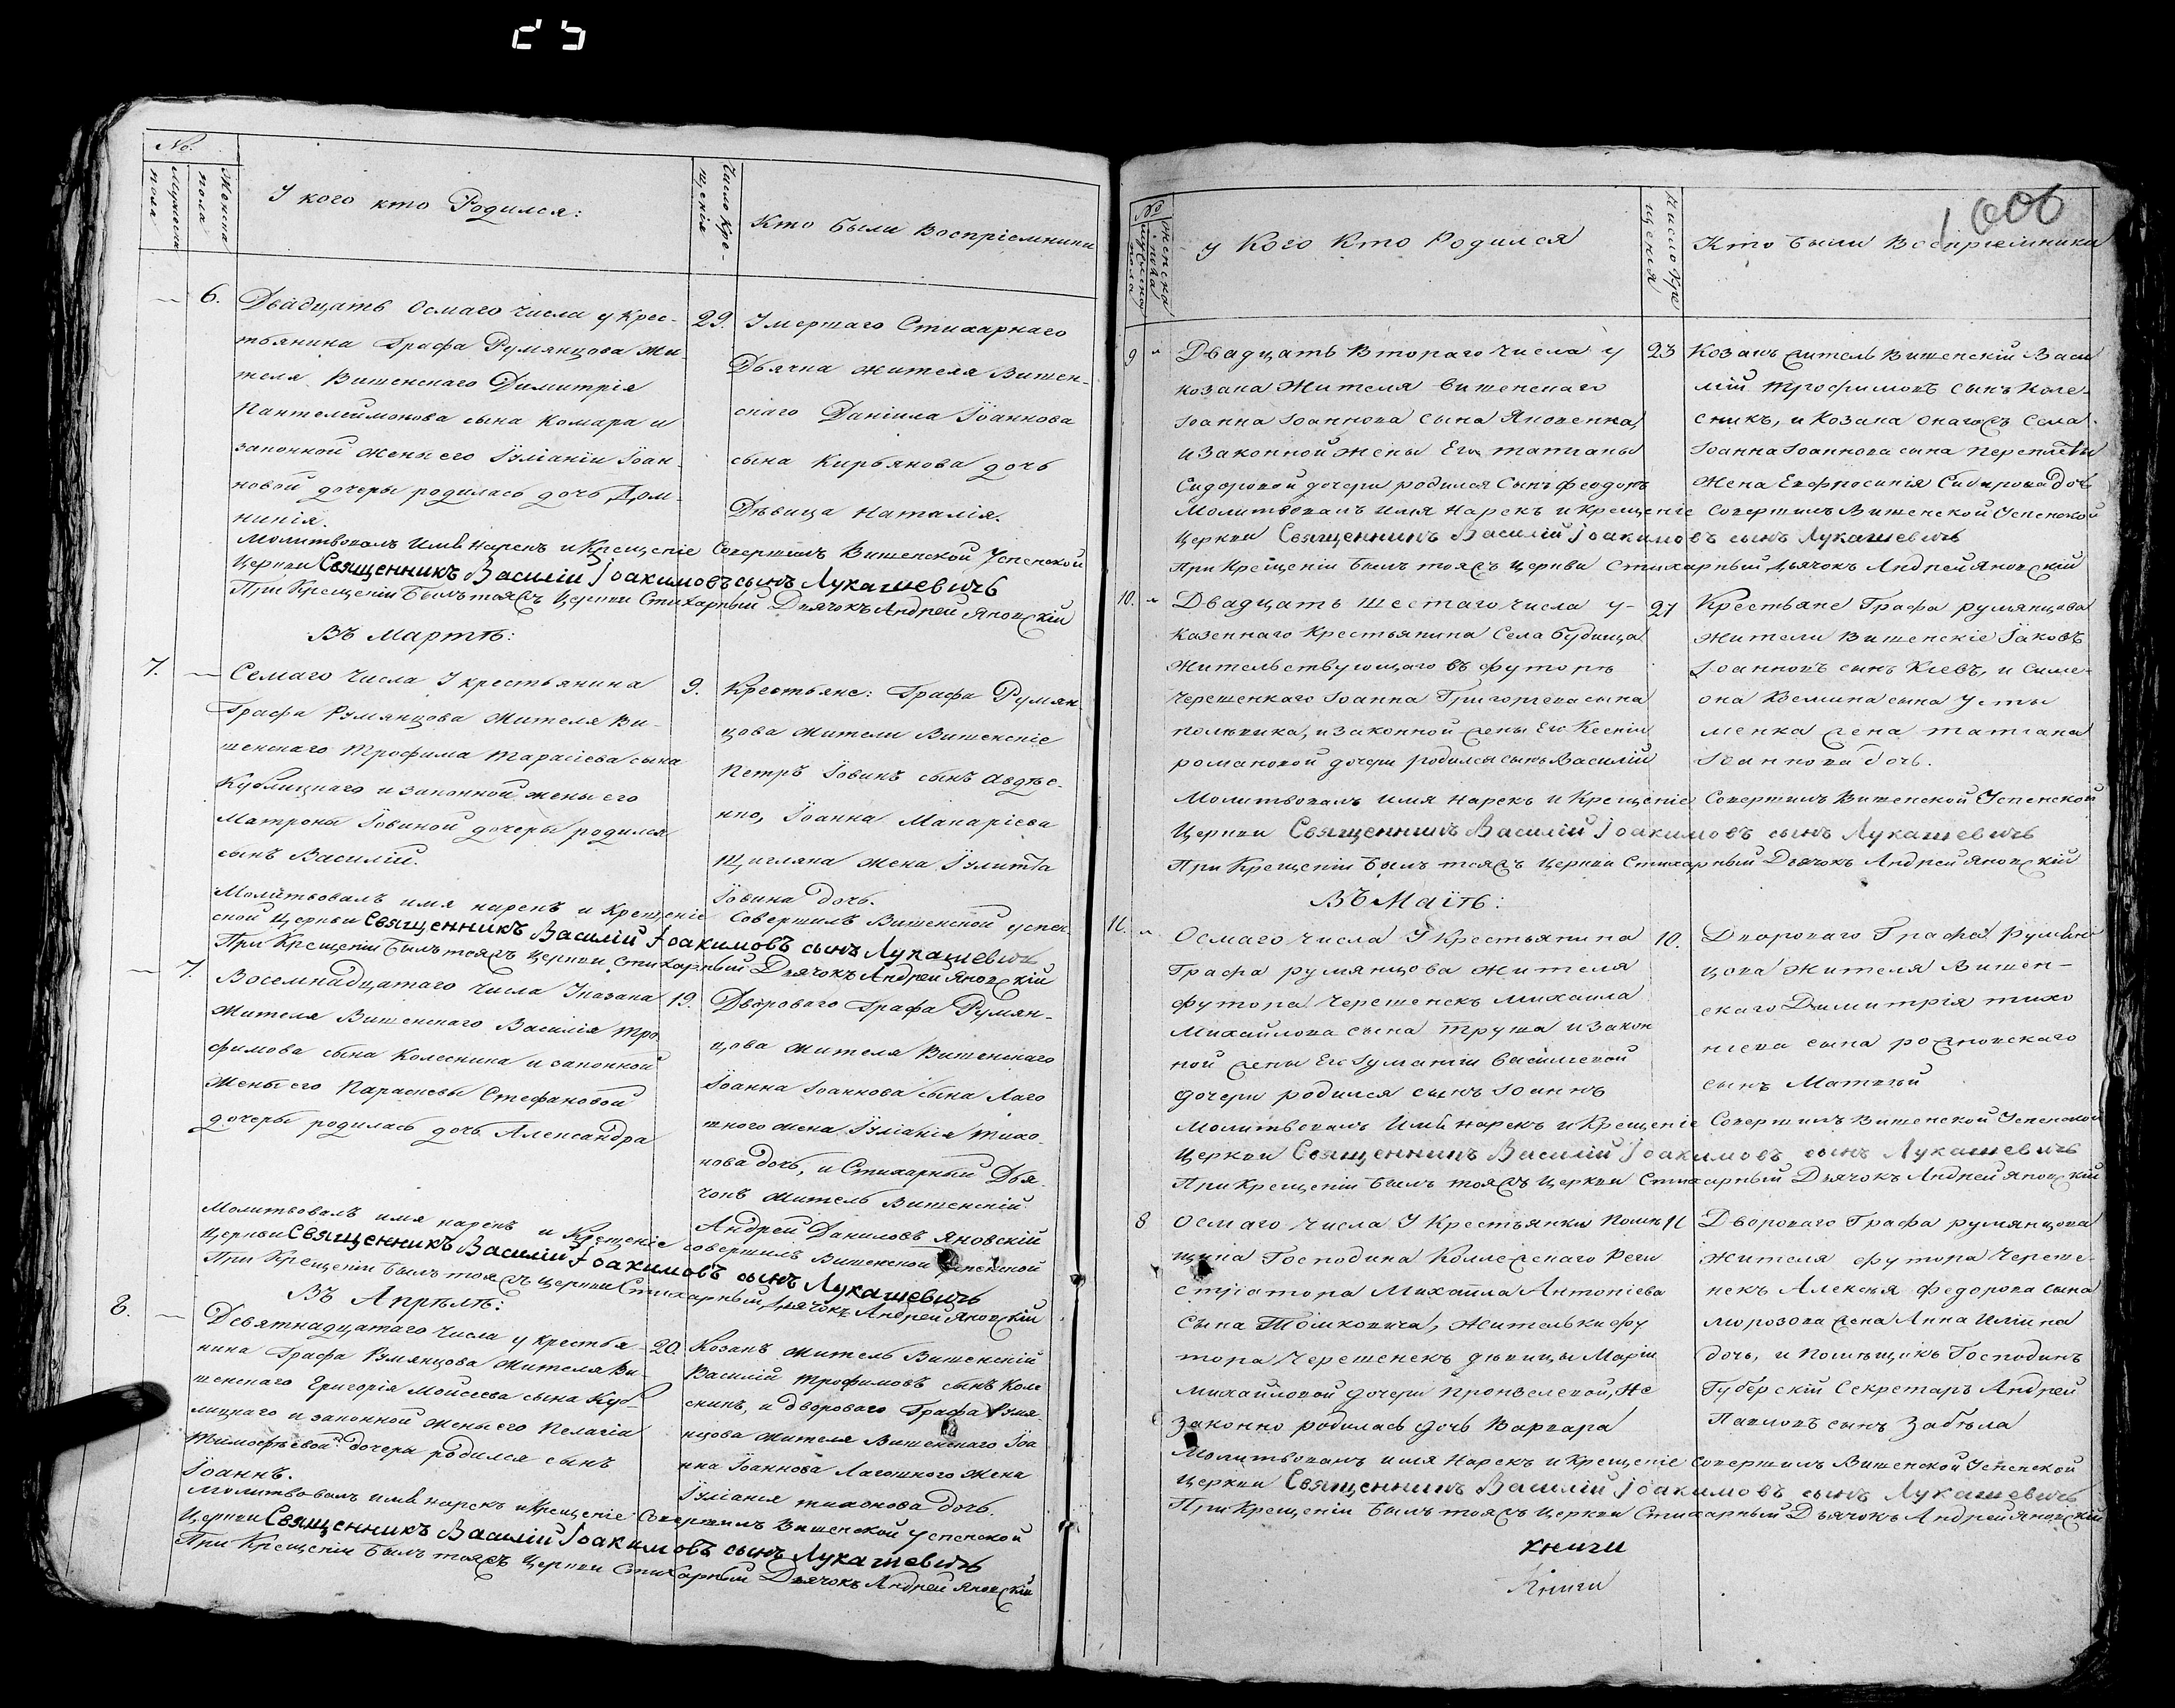 No.
Мужеска пола
Женска пола
У кого кто Родился:
Число Кре-
щенія
Кто были Воспріемники
— 6. Двадцать Осмаго числа у Крес-
тьянина Графа Румянцова жи-
теля Вишенскаго Димитрія
Пантелеймонова сына Комара и
законной жены его Іуліаніи Іоан-
новой дочеры родилась дочь Дом-
никія.
29. Умершаго Стихарнаго
Дьячка жителя Вишен-
скаго Даніила Іоаннова
сына Кирьянова дочь
Дѣвица Наталія.
Молитвовалъ имя нарекъ и Крещеніе Совершилъ Вишенской Успенской
Церкви Священникъ Василій Іоакимовъ сынъ Лукашевичъ
При Крещеніи былъ тояжъ Церкви Стихарный Дьячокъ Андрей Яновскій
Въ Мартѣ:
7. — Семаго Числа У крестьянина
Графа Румянцова жителя Ви-
шенскаго Трофима Тарасіева сына
Кублицкаго и законной жены его
Матроны Іовиной дочеры родился
сынъ Василій.
9. Крестьяне: Графа Румян-
цова жители Вишенскіе
Петръ Іовинъ сынъ Авдѣе-
нко, Іоанна Макаріева
жена Іулитта
Іовина дочь.
Молитвовалъ имя нарекъ и Крещеніе Совершилъ Вишенской успен-
ской Церкви Священникъ Василій Іоакимовъ сынъ Лукашевичъ
При Крещеніи былъ тояжъ Церкви Стихарный Дьячокъ Андрей Яновскій
— 7. Восемнадцатаго Числа У казака
жителя Вишенскаго Василія Тро-
фимова сына Колесника и законной
жены его Параскевы Стефановой
дочеры родилась дочь Александра
19. Двороваго Графа Румян-
цова жителя Вишенскаго
Іоанна Іоаннова сына Лаго
шного жена Іуліанія Тихо-
нова дочь, и Стихарный Дья-
чокъ житель Вишенскій
Андрей Даниловъ Яновскій
Молитвовалъ имя нарекъ и Крещеніе совершилъ Вишенской Успенской
Церкви Священникъ Василій Іоакимовъ сынъ Лукашевичъ
При Крещеніи былъ тояжъ Церкви Стихарный Дьячокъ Андрей Яновскій
Въ Апрѣлѣ:
8. — Девятнадцатаго Числа у крестья-
нина Графа Румянцова жителя Ви-
шенскаго Григорія Моисеева сына Куб-
лицкаго и законной жены его Пелагіи
Тимофѣевой дочеры родился сынъ
Іоаннъ.
20. Козакъ житель Вишенскій
Василій Трофимовъ сынъ Коле
сникъ, и двороваго Графа Румя-
нцова жителя Вишенскаго Іоа
нна Іоаннова Лагошного жена
Іуліанія тихонова дочь.
Молитвовалъ имя нарекъ и Крещеніе Совершилъ Вишенской Успенской
Церкви Священникъ Василій Іоакимовъ сынъ Лукашевичъ
При Крещеніи былъ тояжъ Церкви Стихарный Дьячокъ Андрей Яновскій
1006
No
мужеска пола
женска пола
у Кого Кто Родился
Число Кре
щенія
Кто были Воспріемники
9 „ Двадцать Втораго числа у
козака Жителя Вишенскаго
Іоанна Іоаннова сына Яковенка,
и Законной жены Его татіаны
Сидоровой дочери родился Сынъ Феодоръ
23 Козакъ житель Вишенскій Васи
лій Трофимовъ Сынъ Коле-
сникъ, и Козака онагожъ Села
Іоанна Іоаннова сына
Жена Евфросинія дочь
Молитвовалъ имя нарекъ и крещеніе Совершилъ Вишенской Успенской
Церкви Священникъ Василій Іоакимовъ сынъ Лукашевичъ
При Крещеніи былъ тояжъ Церкви Стихарный Дьячокъ Андрей Яновскій
10. „ Двадцать Шестаго числа у-
казеннаго Крестьянина Села Будища
Жительствующаго въ футорѣ
Черешенкаго Іоанна Григоріева сына
и законной жены Его Ксеніи
романовой дочери родился сынъ Василій
27 Крестьяне Графа румянцова
Жители Вишенскіе Іаковъ
Іоанновъ сынъ Кіевъ, и Симе-
она Козмина сына Усты
менка жена татіана
Іоаннова дочь.
Молитвовалъ имя нарекъ и Крещеніе Совершилъ Вишенской Успенской
Церкви Священникъ Василій Іоакимовъ сынъ Лукашевичъ
При Крещеніи былъ тояжъ Церкви Стихарный Дьячокъ Андрей Яновскій
Въ Маіѣ:
11. „ Осмаго числа У Крестьянина
Графа румянцова жителя
футора Черешенекъ Михаила
Михайлова сына Труша и закон
ной жены Его Іулianіи Василіевой
дочери родился сынъ Іоаннъ
10. Двороваго Графа Румян
цова жителя Вишен-
скаго Димитрія тихо
ніева сына рожновскаго
сынъ Матвей
Молитвовалъ имя нарекъ и Крещеніе Совершилъ Вишенской Успенской
Церкви Священникъ Василій Іоакимовъ сынъ Лукашевичъ
При Крещеніи былъ тояжъ Церкви Стихарный Дьячокъ Андрей Яновскій
8 Осмаго Числа У Крестьянки Помѣ
щика Господина Коллежскаго Реги
стратора Михаила Антоніева
Сына Томковича, Жительки фу
тора Черешенекъ дѣвицы Маріи
Михайловой дочери Не
законно родилась дочь Варвара
11 Двороваго Графа румянцова
Жителя футора Череше-
некъ Алексѣя Федорова Сына
Морозова жена Анна Иліина
дочь, и Помѣщикъ Господинъ
Губерскій Секретаръ Андрей
Павловъ сынъ Забѣла
Молитвовалъ имя нарекъ и Крещеніе Совершилъ Вишенской Успенской
Церкви Священникъ Василій Іоакимовъ сынъ Лукашевичъ
При Крещеніи былъ тояжъ Церкви Стихарный Дьячокъ Андрей Яновскій
книги
Книги